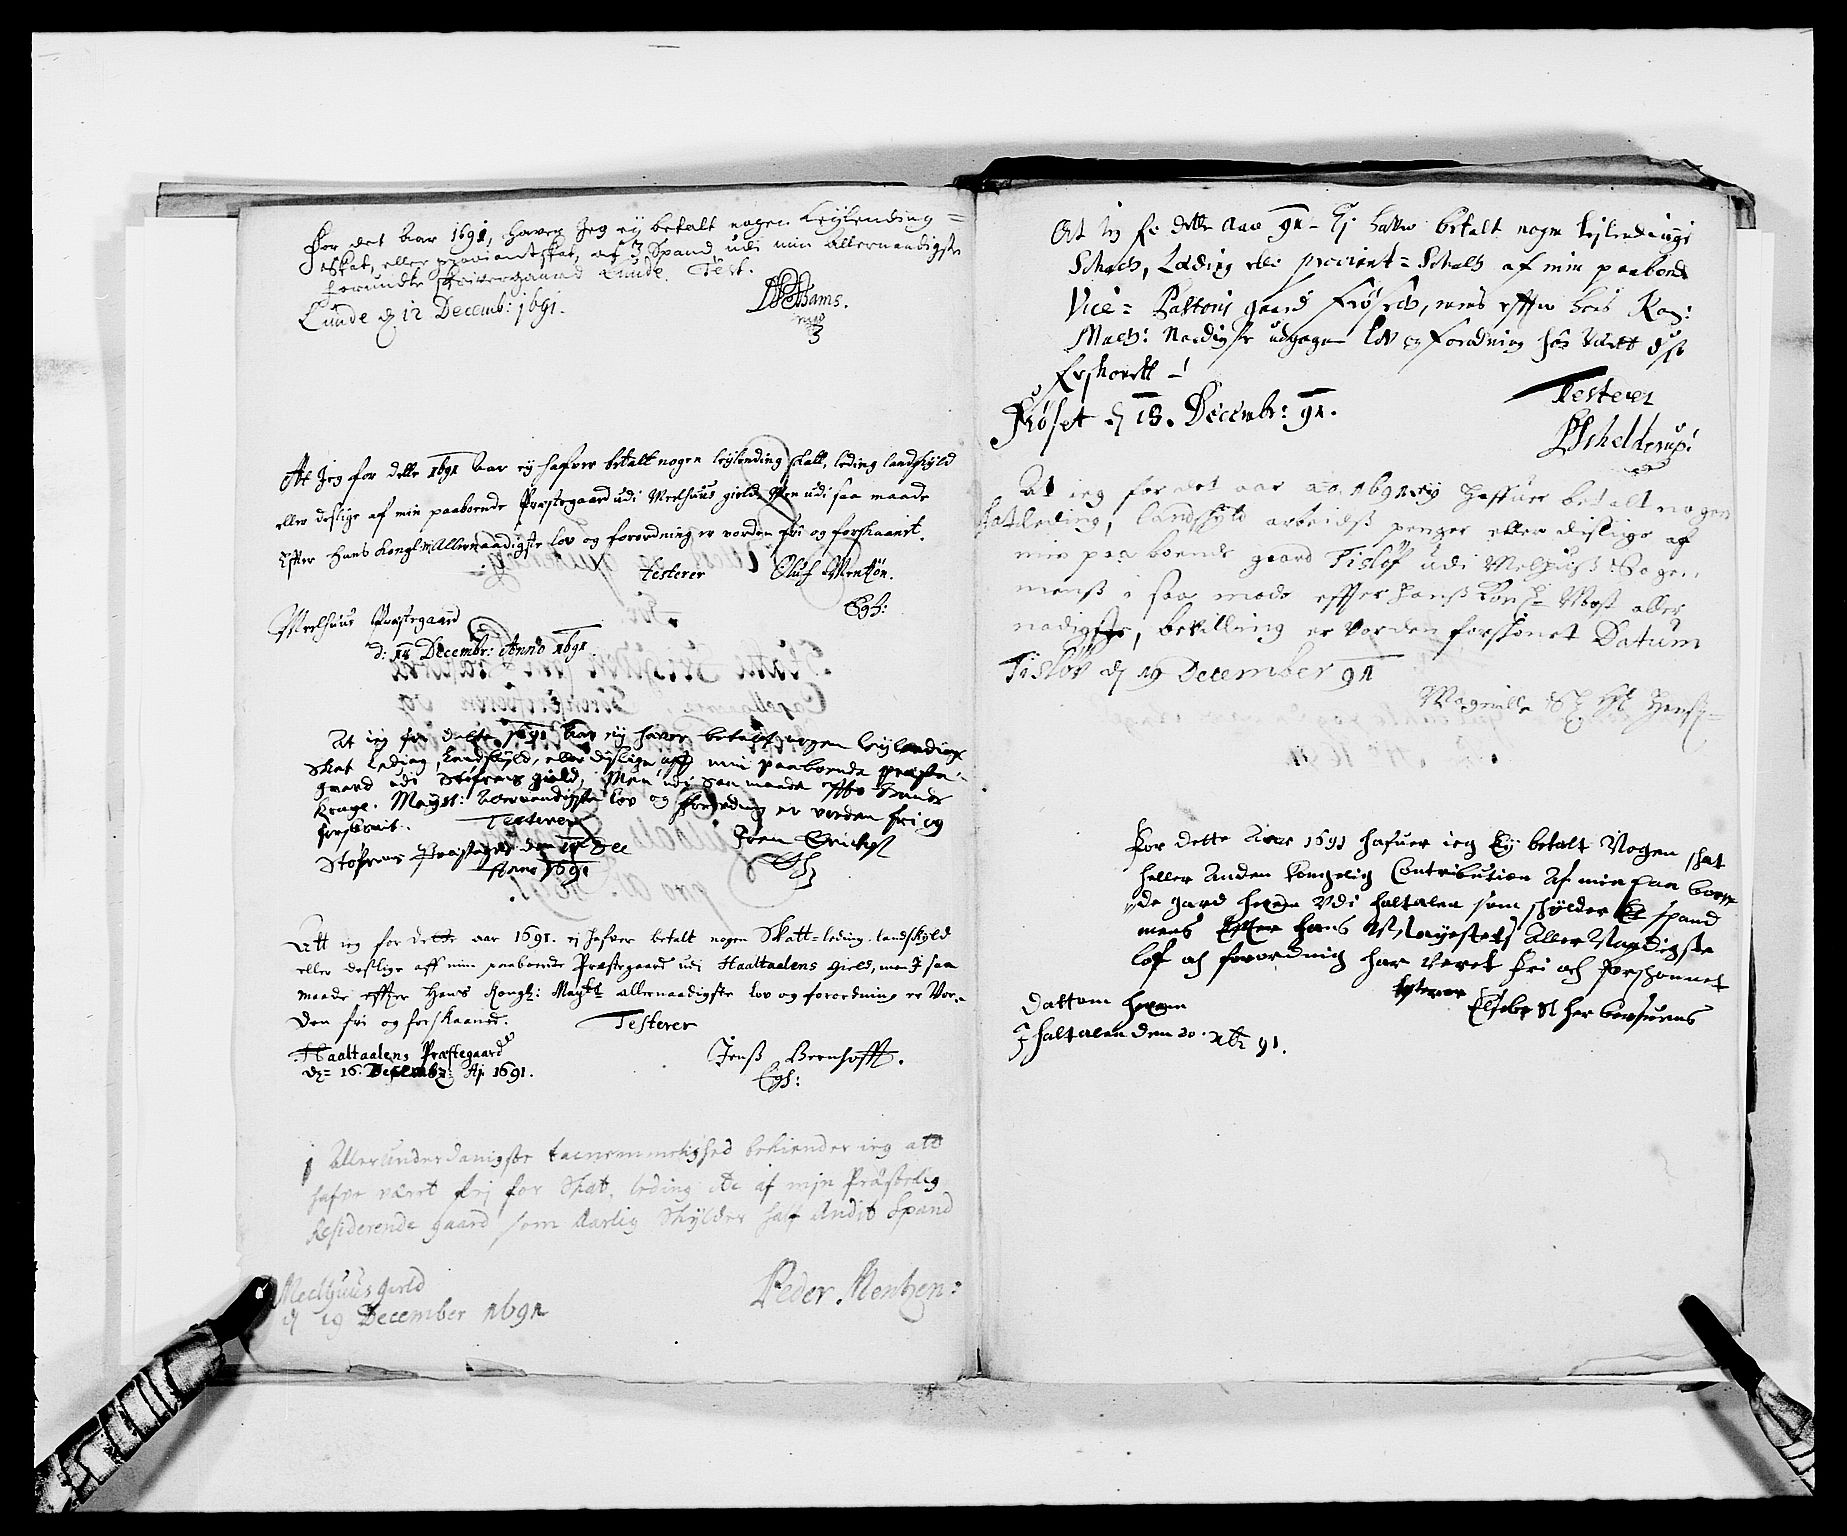 For det Aar 1691, hafver Jeg ej betalt nogen Leylending=
Skat, eller proviantskat, af 3 Spand udi min allernaadigste
forundte skrivergaard Lunde. Test.
Lunde d 12 Decemb: 1691.
Adams.
mp
At Jeg for dette 1691 Aar ey hafver betalt nogen leylending skatt, leding landskyld
eller deslige af min paaboende Præstegaard udi Meelhuus gield, Men udi saa maade
Efter Hans Kongl: M Allernaadigste lov og forordning er vorden fri og forskaanet.
Testerer Oluf Mentzøn.
Egh:
Meelhuus Præstegaard
d: 14 Decembr: Anno 1691.
At ieg for dette 1691 Aar ey hafver betalt nogen leylending
Skat Leding, Landskyld, eller dislige aff min paaboende præste-
gaard udi Støfrens gield, Men udi saa maade efter Hands
Konge. Mayst: Allernaadigste lov og forordning er vorden fri og
forskaanit. Testerer
Støfrens Præstegrd den 14 Dec Iven Erichsø
Anno 1691 Eh
Att ieg for dette aar 1691. ej hafver betalt nogen Skatt=leding, landskyld
eller deslige aff min paaboende Præstegaard udi Haaltaalens Gield, men I saa
maade effter Hans Kongl: Maytts allernaadigste Lov og forordning er Vor-
den fri og forskaaned. Testerer
Haaltaalens Præstegaard
d= 16. Decembr: Aj. 1691. Jenss Bernhofft.
Egh:
I Allerunderdanigste tacnemmelighed bekiender ieg att
hafve været frj for Skat, leding etc af mjn Præstelig
Residerende gaard som Aarlig Skylder half Andit Spand
Meelhuus gield
d 19 December 1691 Peder Mentzen:
At ieg for dette Aar 91 Ej hafver betalt nogen leylendings
Schatt, Leding elli proviant=Schatt af min paaboende
Vice=Pastoris gaard Frøset, mens effter hans Kog:
Maytt: Naadigste udgagen Lov og Forordning har værett
forskonett -!
Frøset d 13. Decembr: 91. Testerer
PSchelderup!
At ieg for det aar ao. 1691 ey haffuer betalt nogen
skat leding, landskyld arbeidss penger eller dislige af
min paa boende gaard Tisløf udi Melhuss Sogen,
menss i saa made effter hanss Kon: Mast aller
nadigste, bevilling er vorden forskonet Datum
Tisløv d 19 December 91
Magnille Sl Hr Hanss=
For dette Aar 1691 hafuer ieg Ey betalt Nogen skat
heller Anden kongelig Contribution Af min paa boen
de gard udi haltalen som skylder Et spand
mens Efter hans Mayestets Aller Naadigste
lof och forordnich har veret fri och forschonnet
testerer
Dattom
I haltalen den 20. Xbr 91.